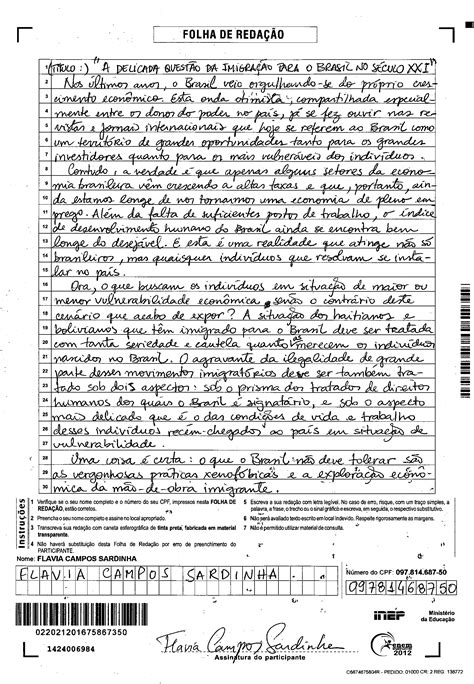 FOLHA DE REDAÇÃO
1 (TÍTULO:) "A DELICADA QUESTÃO DA IMIGRAÇÃO PARA O BRASIL NO SÉCULO XXI"
2 Nos últimos anos, o Brasil veio orgulhando-se do próprio cres-
3 cimento econômico. Esta onda otimista, compartilhada especial-
4 mente entre os donos do poder no país, já se fez ouvir nas re-
5 vistas e jornais internacionais que hoje se referem ao Brasil como
6 um território de grandes oportunidades tanto para os grandes
7 investidores quanto para os mais vulneráveis dos indivíduos.
8 Contudo, a verdade é que apenas alguns setores da econo-
9 mia brasileira vêm crescendo a altas taxas e que, portanto, ain-
10 da estamos longe de nos tornarmos uma economia de pleno em-
11 prego. Além da falta de suficientes postos de trabalho, o índice
12 de desenvolvimento humano do Brasil ainda se encontra bem
13 longe do desejável. E esta é uma realidade que atinge não só
14 brasileiros, mas quaisquer indivíduos que resolvam se insta-
15 lar no país.
16 Ora, o que buscam os indivíduos em situação de maior ou
17 menor vulnerabilidade econômica senão o contrário deste
18 cenário que acabo de expor? A situação dos haitianos e
19 bolivianos que têm imigrado para o Brasil deve ser tratada
20 com tanta seriedade e cautela quanto as merecem os indivíduos
21 nascidos no Brasil. O agravante da ilegalidade de grande
22 parte desses movimentos imigratórios deve ser também tra-
23 tado sob dois aspectos: sob o prisma dos tratados de direitos
24 humanos dos quais o Brasil é signatário, e sob o aspecto
25 mais delicado que é o das condições de vida e trabalho
26 desses indivíduos recém-chegados ao país em situação de
27 vulnerabilidade.
28 Uma coisa é certa: o que o Brasil não deve tolerar são
29 as vergonhosas práticas xenofóbicas e a exploração econô-
30 mica da mão-de-obra imigrante.
Instruções
1 Verifique se o seu nome completo e o número do seu CPF, impressos nesta FOLHA DE REDAÇÃO, estão corretos.
2 Preencha o seu nome completo e assine no local apropriado.
3 Transcreva sua redação com caneta esferográfica de tinta preta, fabricada em material transparente.
4 Não haverá substituição desta Folha de Redação por erro de preenchimento do PARTICIPANTE.
5 Escreva a sua redação com letra legível. No caso de erro, risque, com um traço simples, a palavra, a frase, o trecho ou o sinal gráfico e escreva, em seguida, o respectivo substitutivo.
6 Não será avaliado texto escrito em local indevido. Respeite rigorosamente as margens.
7 Não é permitido utilizar material de consulta.
Nome: FLAVIA CAMPOS SARDINHA
Número do CPF: 097.814.687-50
FLAVIA CAMPOS SARDINHA
09781468750
022021201675867350
1424006984
Flavia Campos Sardinha
Assinatura do participante
inep
Ministério da Educação
enem 2012